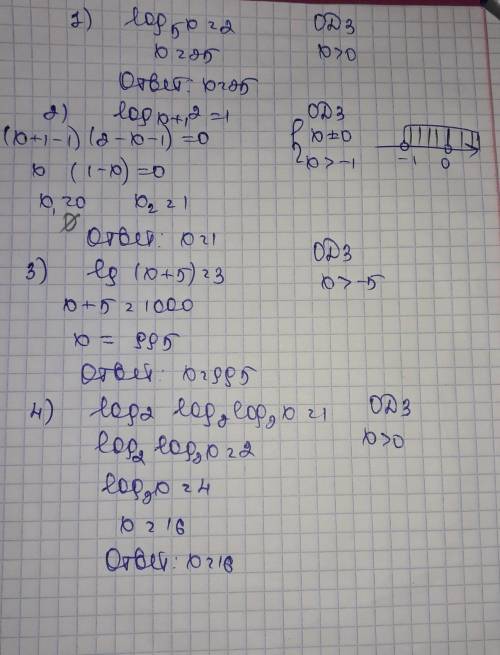 1) log₅x=2 ОДЗ
x=25 x>0
Ответ: x=25
2) logₓ₊₁2=1 ОДЗ
(x+1-1)(2-x-1)=0 { x≠0
x (1-x)=0 x>-1 -1 0
x₁=0 x₂=1
∅
Ответ: x=1
3) lg (x+5)=3 ОДЗ
x+5=1000 x>-5
x= 995
Ответ: x=995
4) log2 log₂log₂x=1 ОДЗ
log₂ log₂x=2 x>0
log₂x=4
x=16
Ответ: x=16